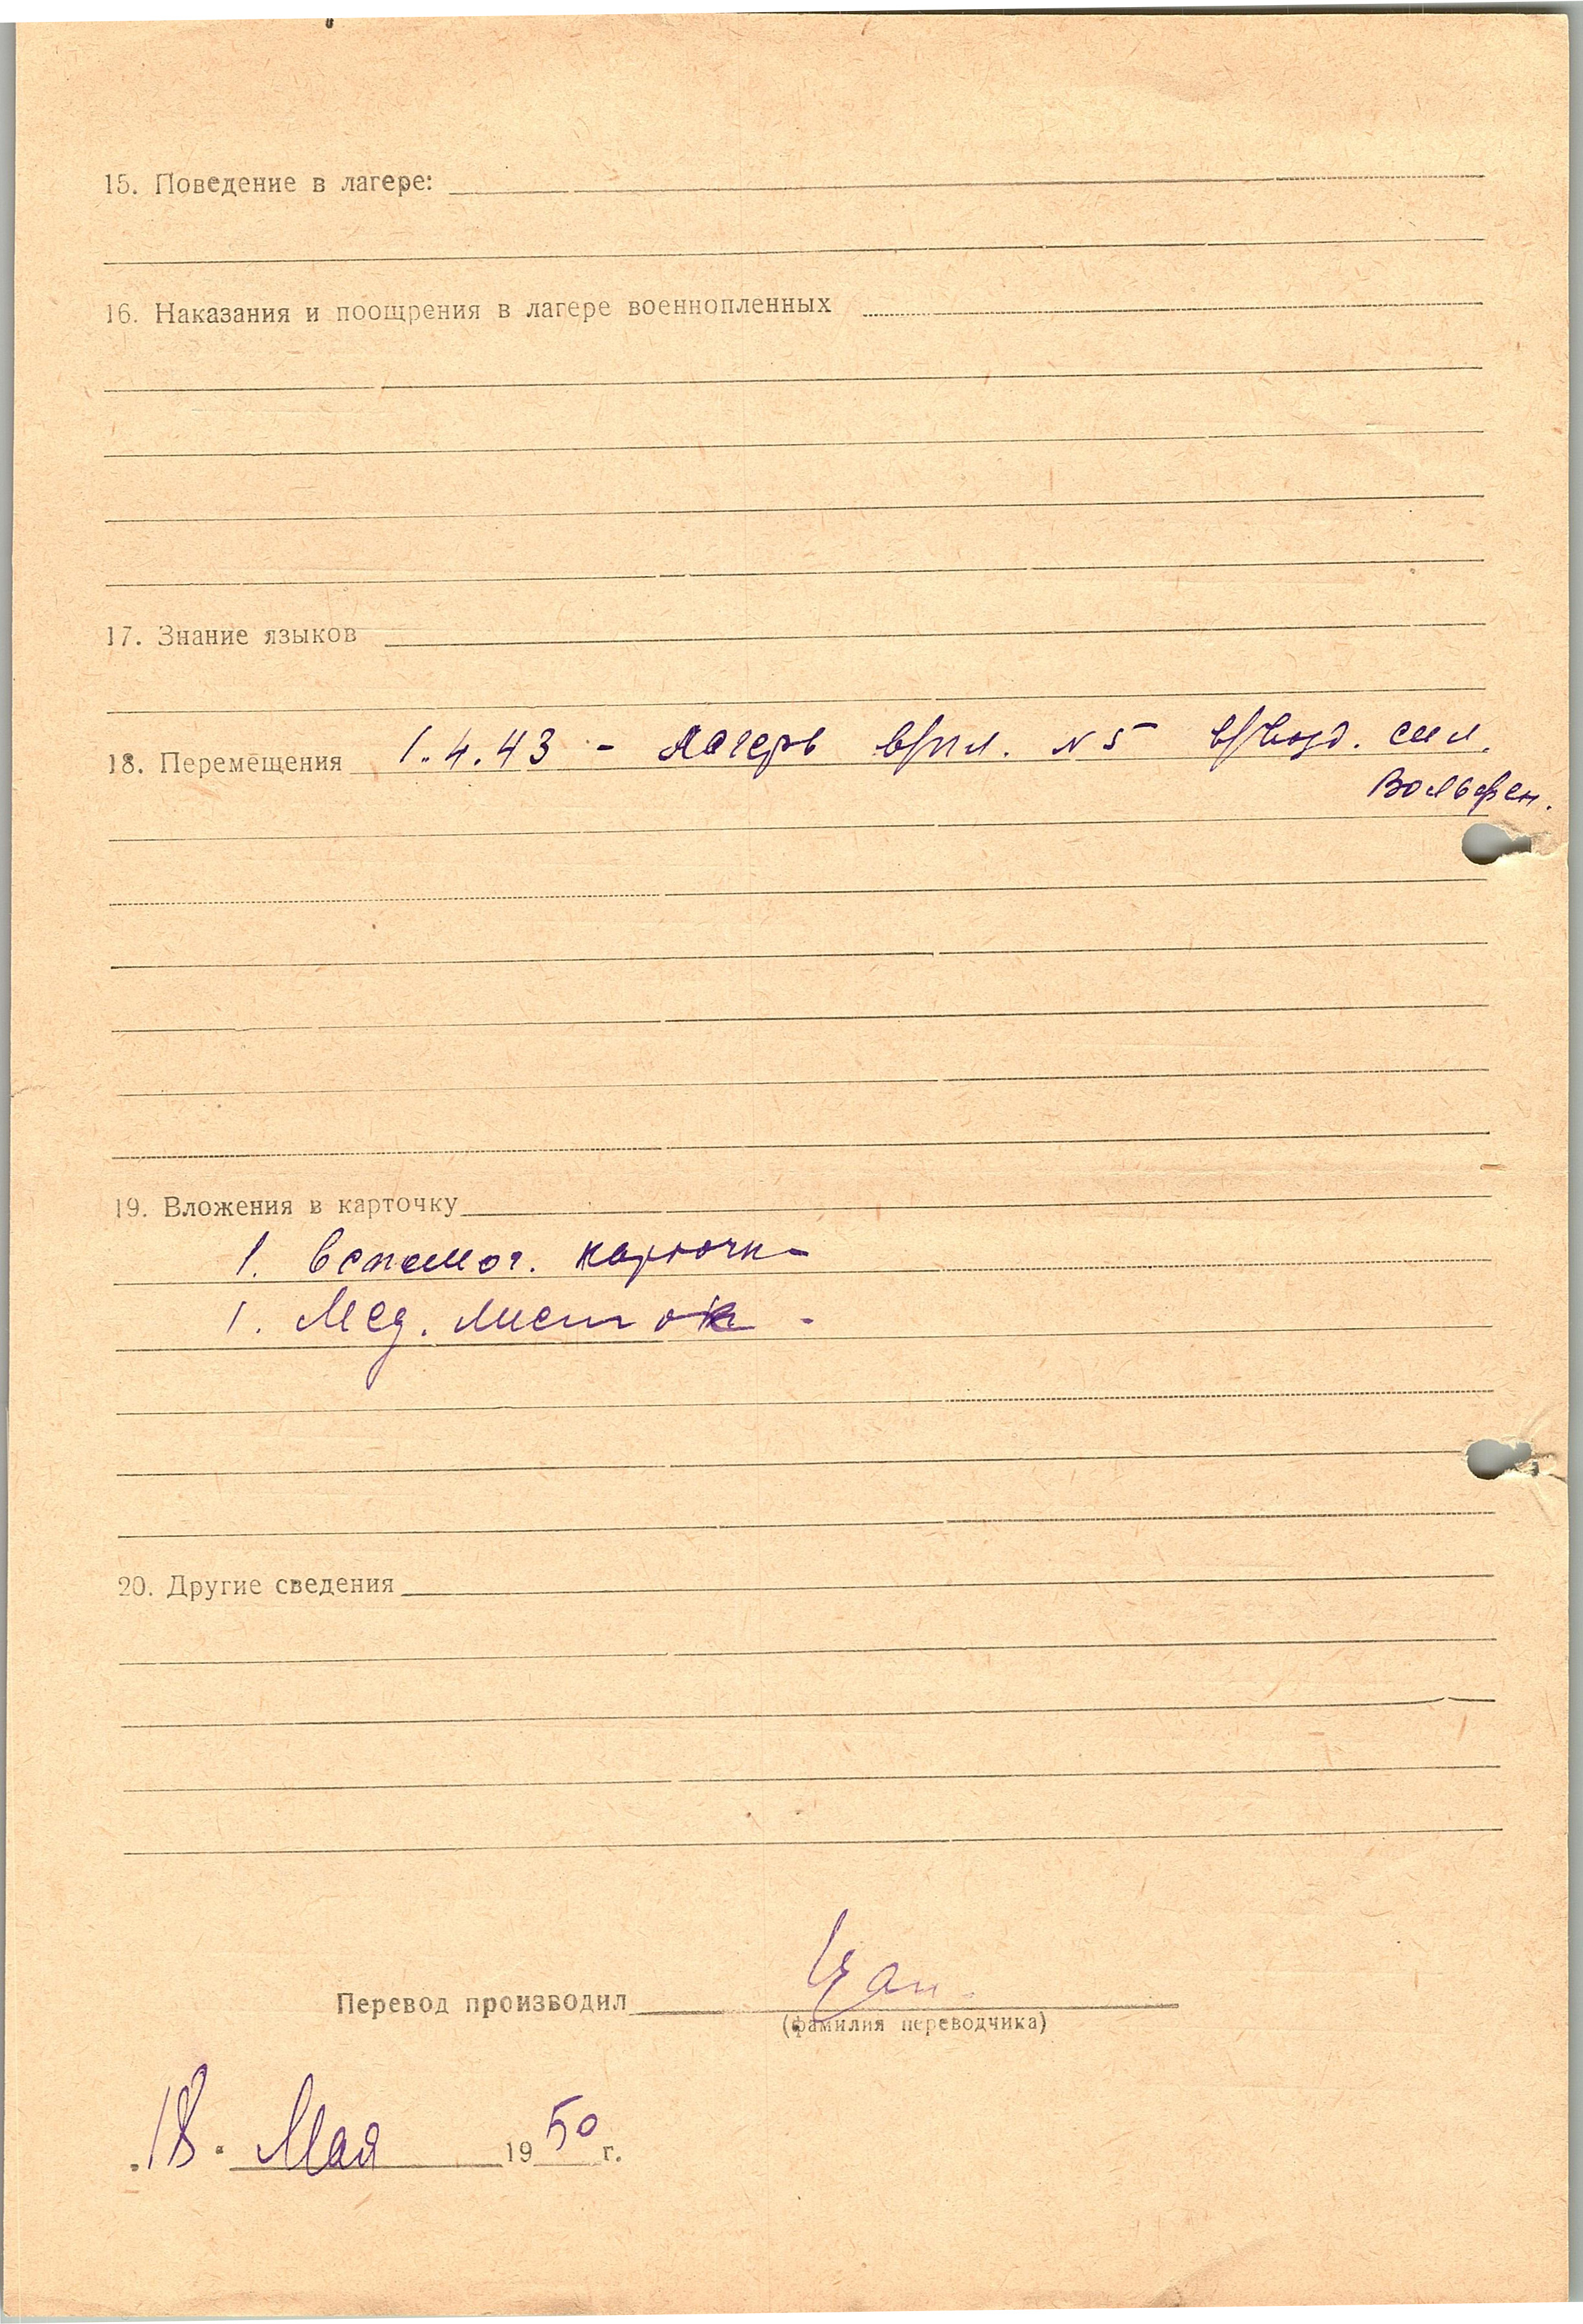 15. Поведение в лагере:
16. Наказания и поощрения в лагере военнопленных
17. Знание языков
18. Перемещения 1.4.43 - Лагерь в/пл. N 5 в/возд. сил.
Вольфен.
19. Вложения в карточку
1. вспомог. карточка
1. Мед. листок.
20. Другие сведения
Перевод производил
(фамилия переводчика)
"18" Мая 1950 г.